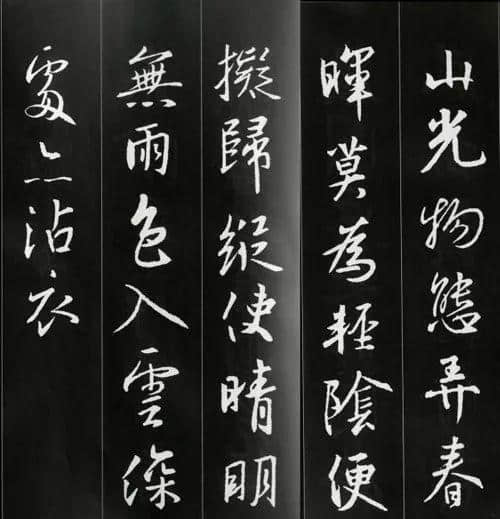 山光物態弄春
暉莫為輕陰便
擬歸縱使晴明
無雨色入雲深
處亦沾衣